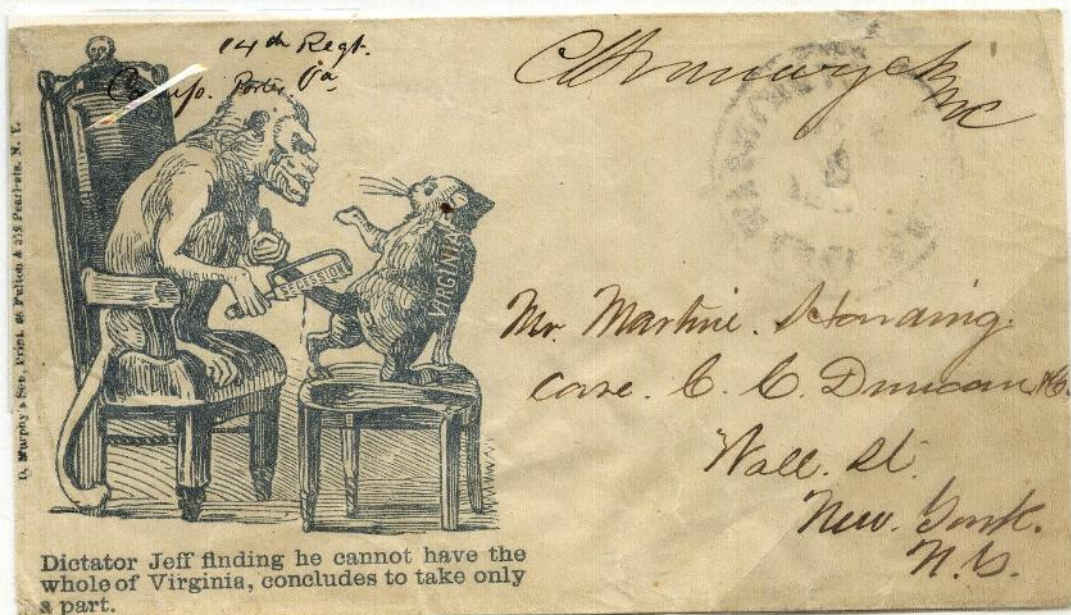 14th Regt.
Camp. Porter Va
D. Murphy's Son, Print. 65 Fulton & 372 Pearl-sts. N. Y.
SECESSION
VIRGINIA
MC
Mr. Martin.
care. C. C. Duncan & Co.
Wall. St.
New. York.
N.Y.
Dictator Jeff finding he cannot have the
whole of Virginia, concludes to take only
a part.